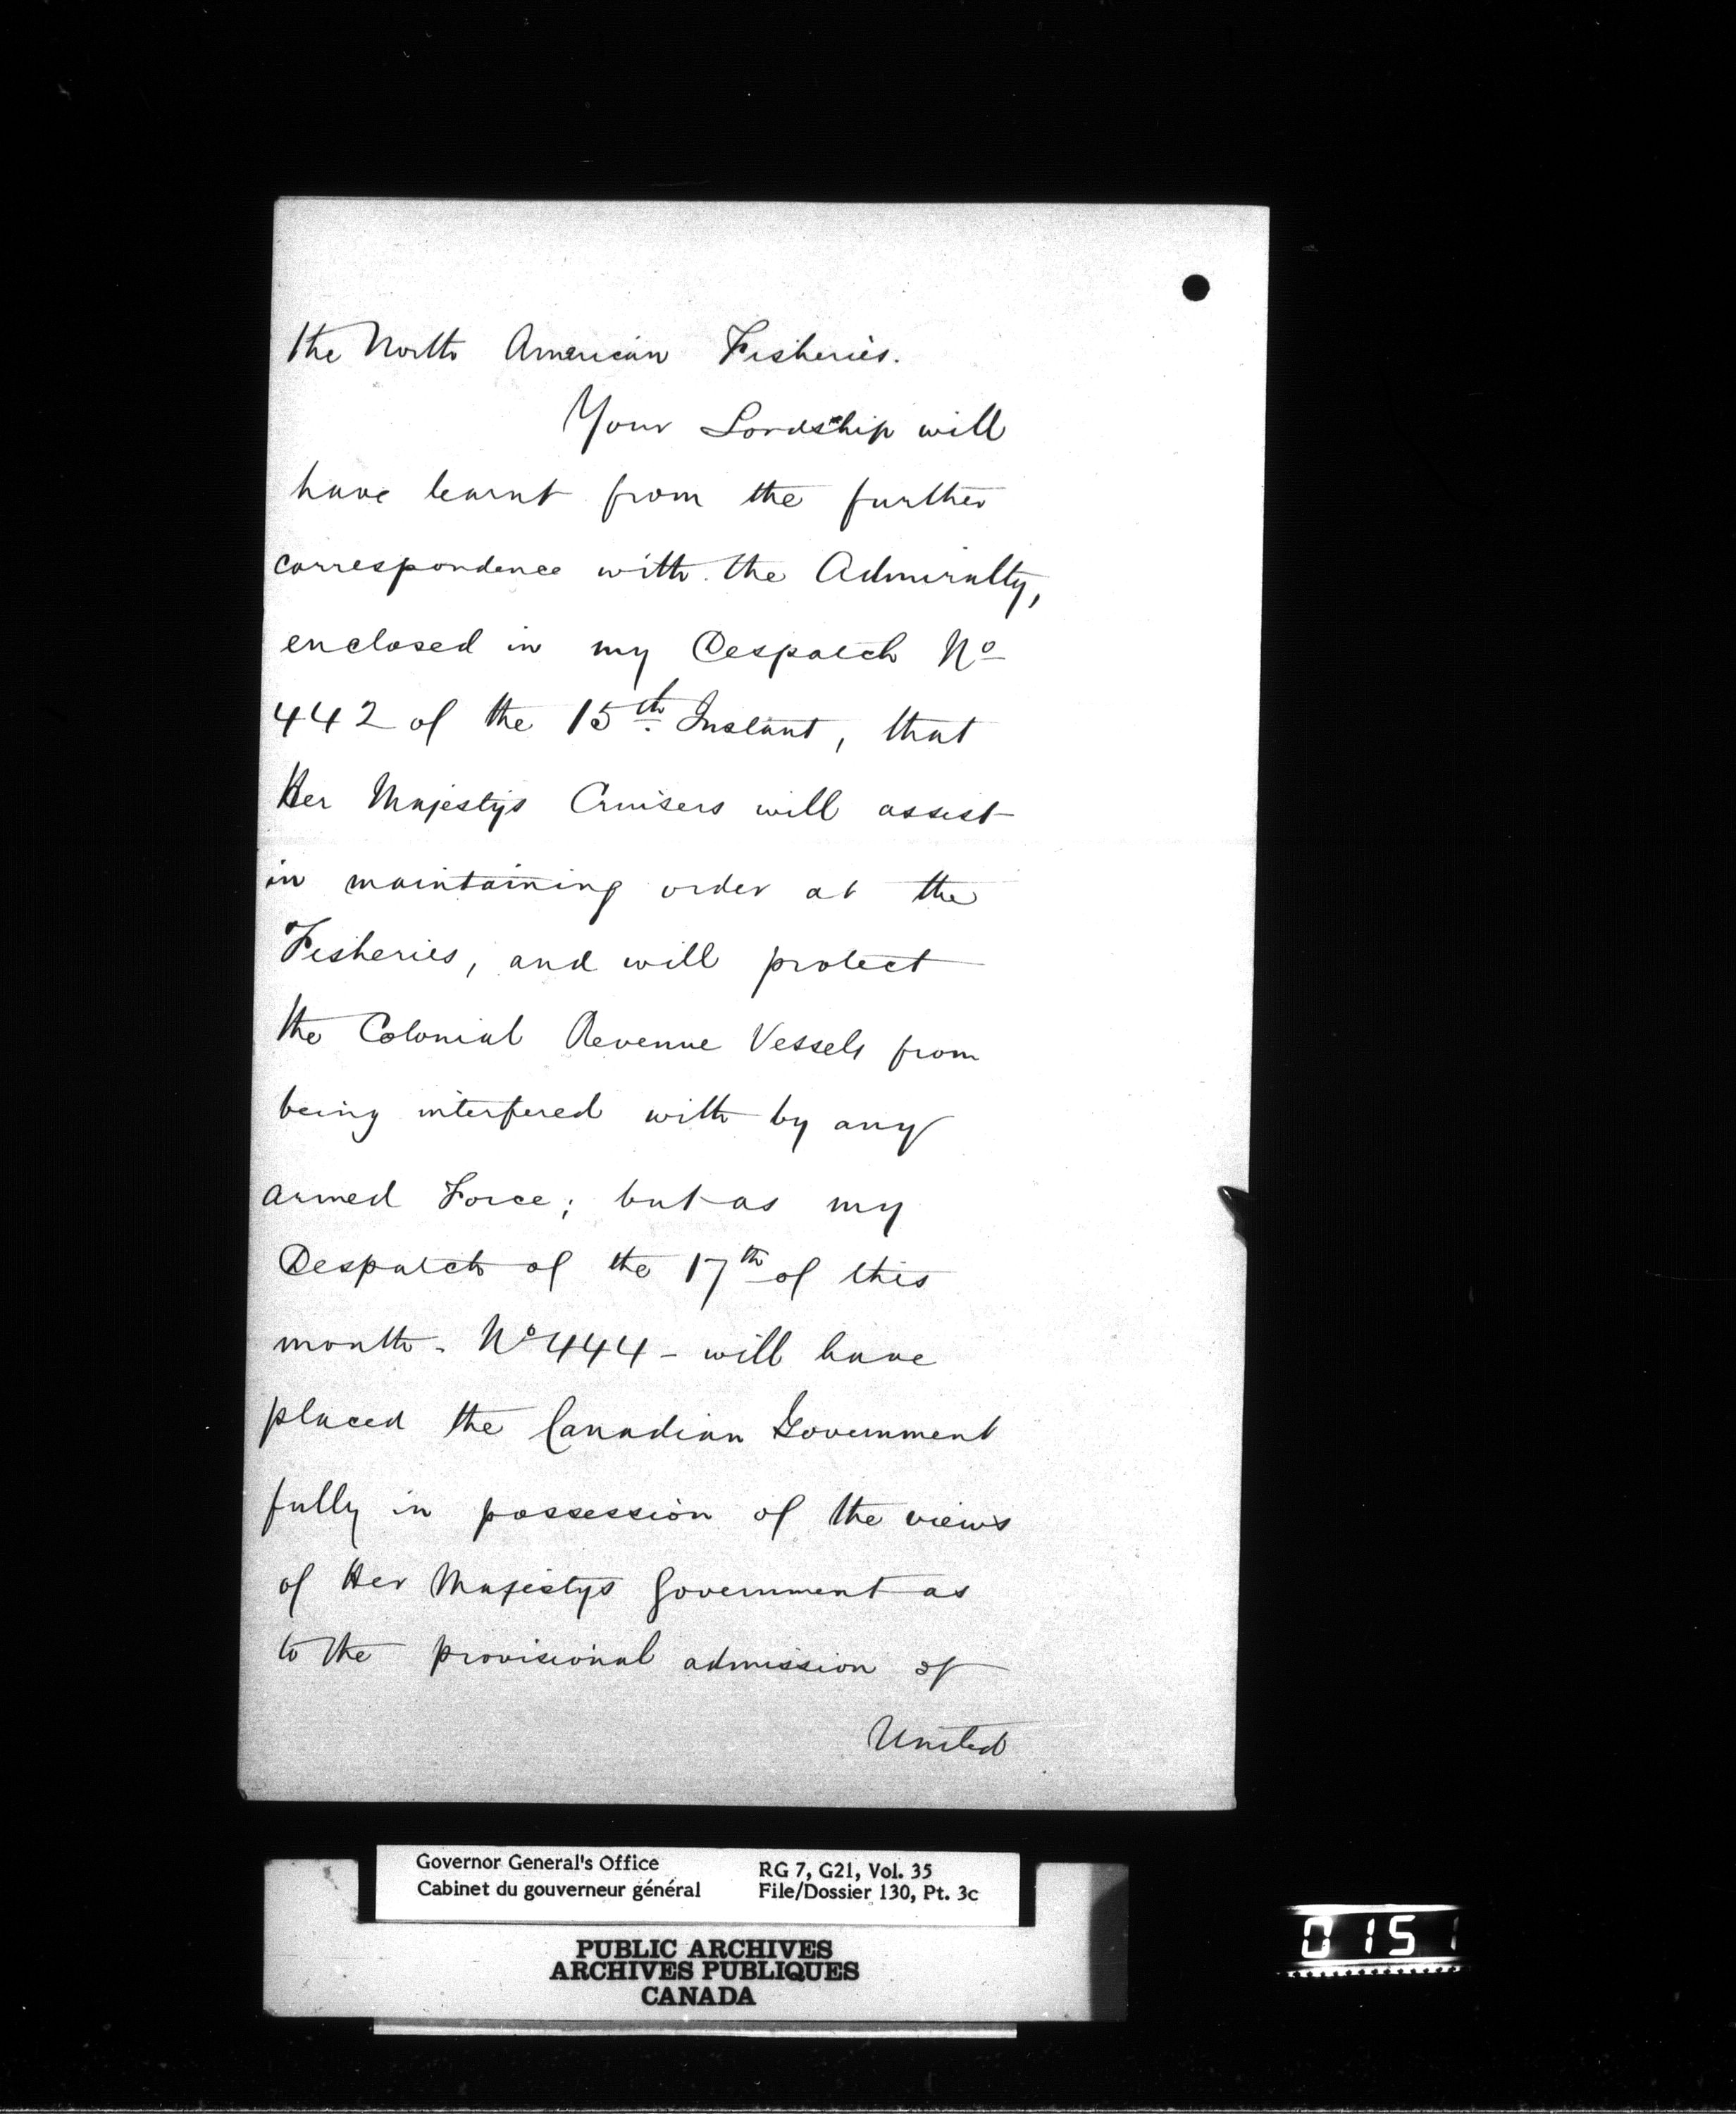 the North American Fisheries.
Your Lordship will
have learnt from the further
correspondence with the Admiralty,
enclosed in my Despatch No
442 of the 15th. Instant, that
Her Majestys Cruisers will assist
in maintaining order at the
Fisheries, and will protect
the Colonial Revenue Vessels from
being interfered with by any
armed Force; but as my
Despatch of the 17th of this
month - No 444 - will have
placed the Canadian Government
fully in possession of the views
of Her Majestys Government as
to the provisional admission of
United
Governor General's Office
Cabinet du gouverneur général
RG 7, G21, Vol. 35
File/Dossier 130, Pt. 3c
PUBLIC ARCHIVES
ARCHIVES PUBLIQUES
CANADA
0151